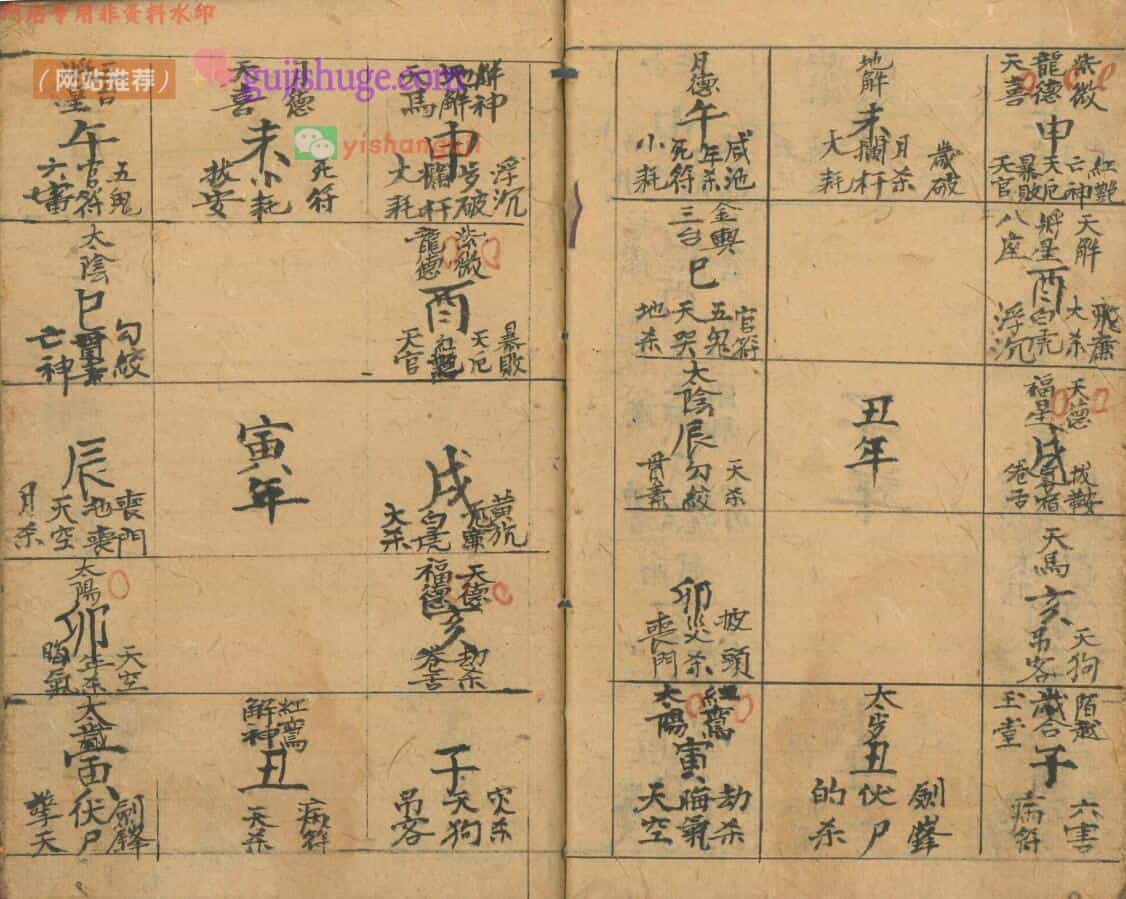 网站专用非资料水印
（网站推荐）
gujishuge.com
月德
午
咸池
年杀
死符
小耗
地解
未
歲破
月杀
攔杆
大耗
紫微
龍德
天喜
申
紅艷
亡神
天厄
暴敗
天官
金輿
三台
巳
官符
五鬼
天哭
地杀
天解
將星
八座
酉
飛廉
大杀
白虎
浮沉
太陰
辰
天杀
勾絞
貫索
丑年
天德
福星
戌
拔鞍
寡宿
卷舌
卯
披頭
災杀
喪門
天馬
亥
天狗
吊客
紅鸞
太陽
寅
劫杀
晦氣
天空
太歩
丑
劍鋒
伏尸
的杀
陌越
歲合
玉堂
子
六害
病符
午
五鬼
官符
六害
月德
天喜
未
死符
小耗
拔安
解神
地解
天馬
申
浮沉
歩破
攔杆
大耗
太陰
巳
勾絞
貫索
亡神
紫微
龍德
酉
暴敗
天厄
紅艷
天官
辰
喪門
地喪
天空
月杀
寅年
戌
白虎
大杀
太陽
卯
天空
年杀
晦氣
天德
福德
亥
劫杀
卷舌
太歲
寅
劍鋒
伏尸
擎天
紅鸞
解神
丑
病符
天杀
子
災杀
天狗
吊客